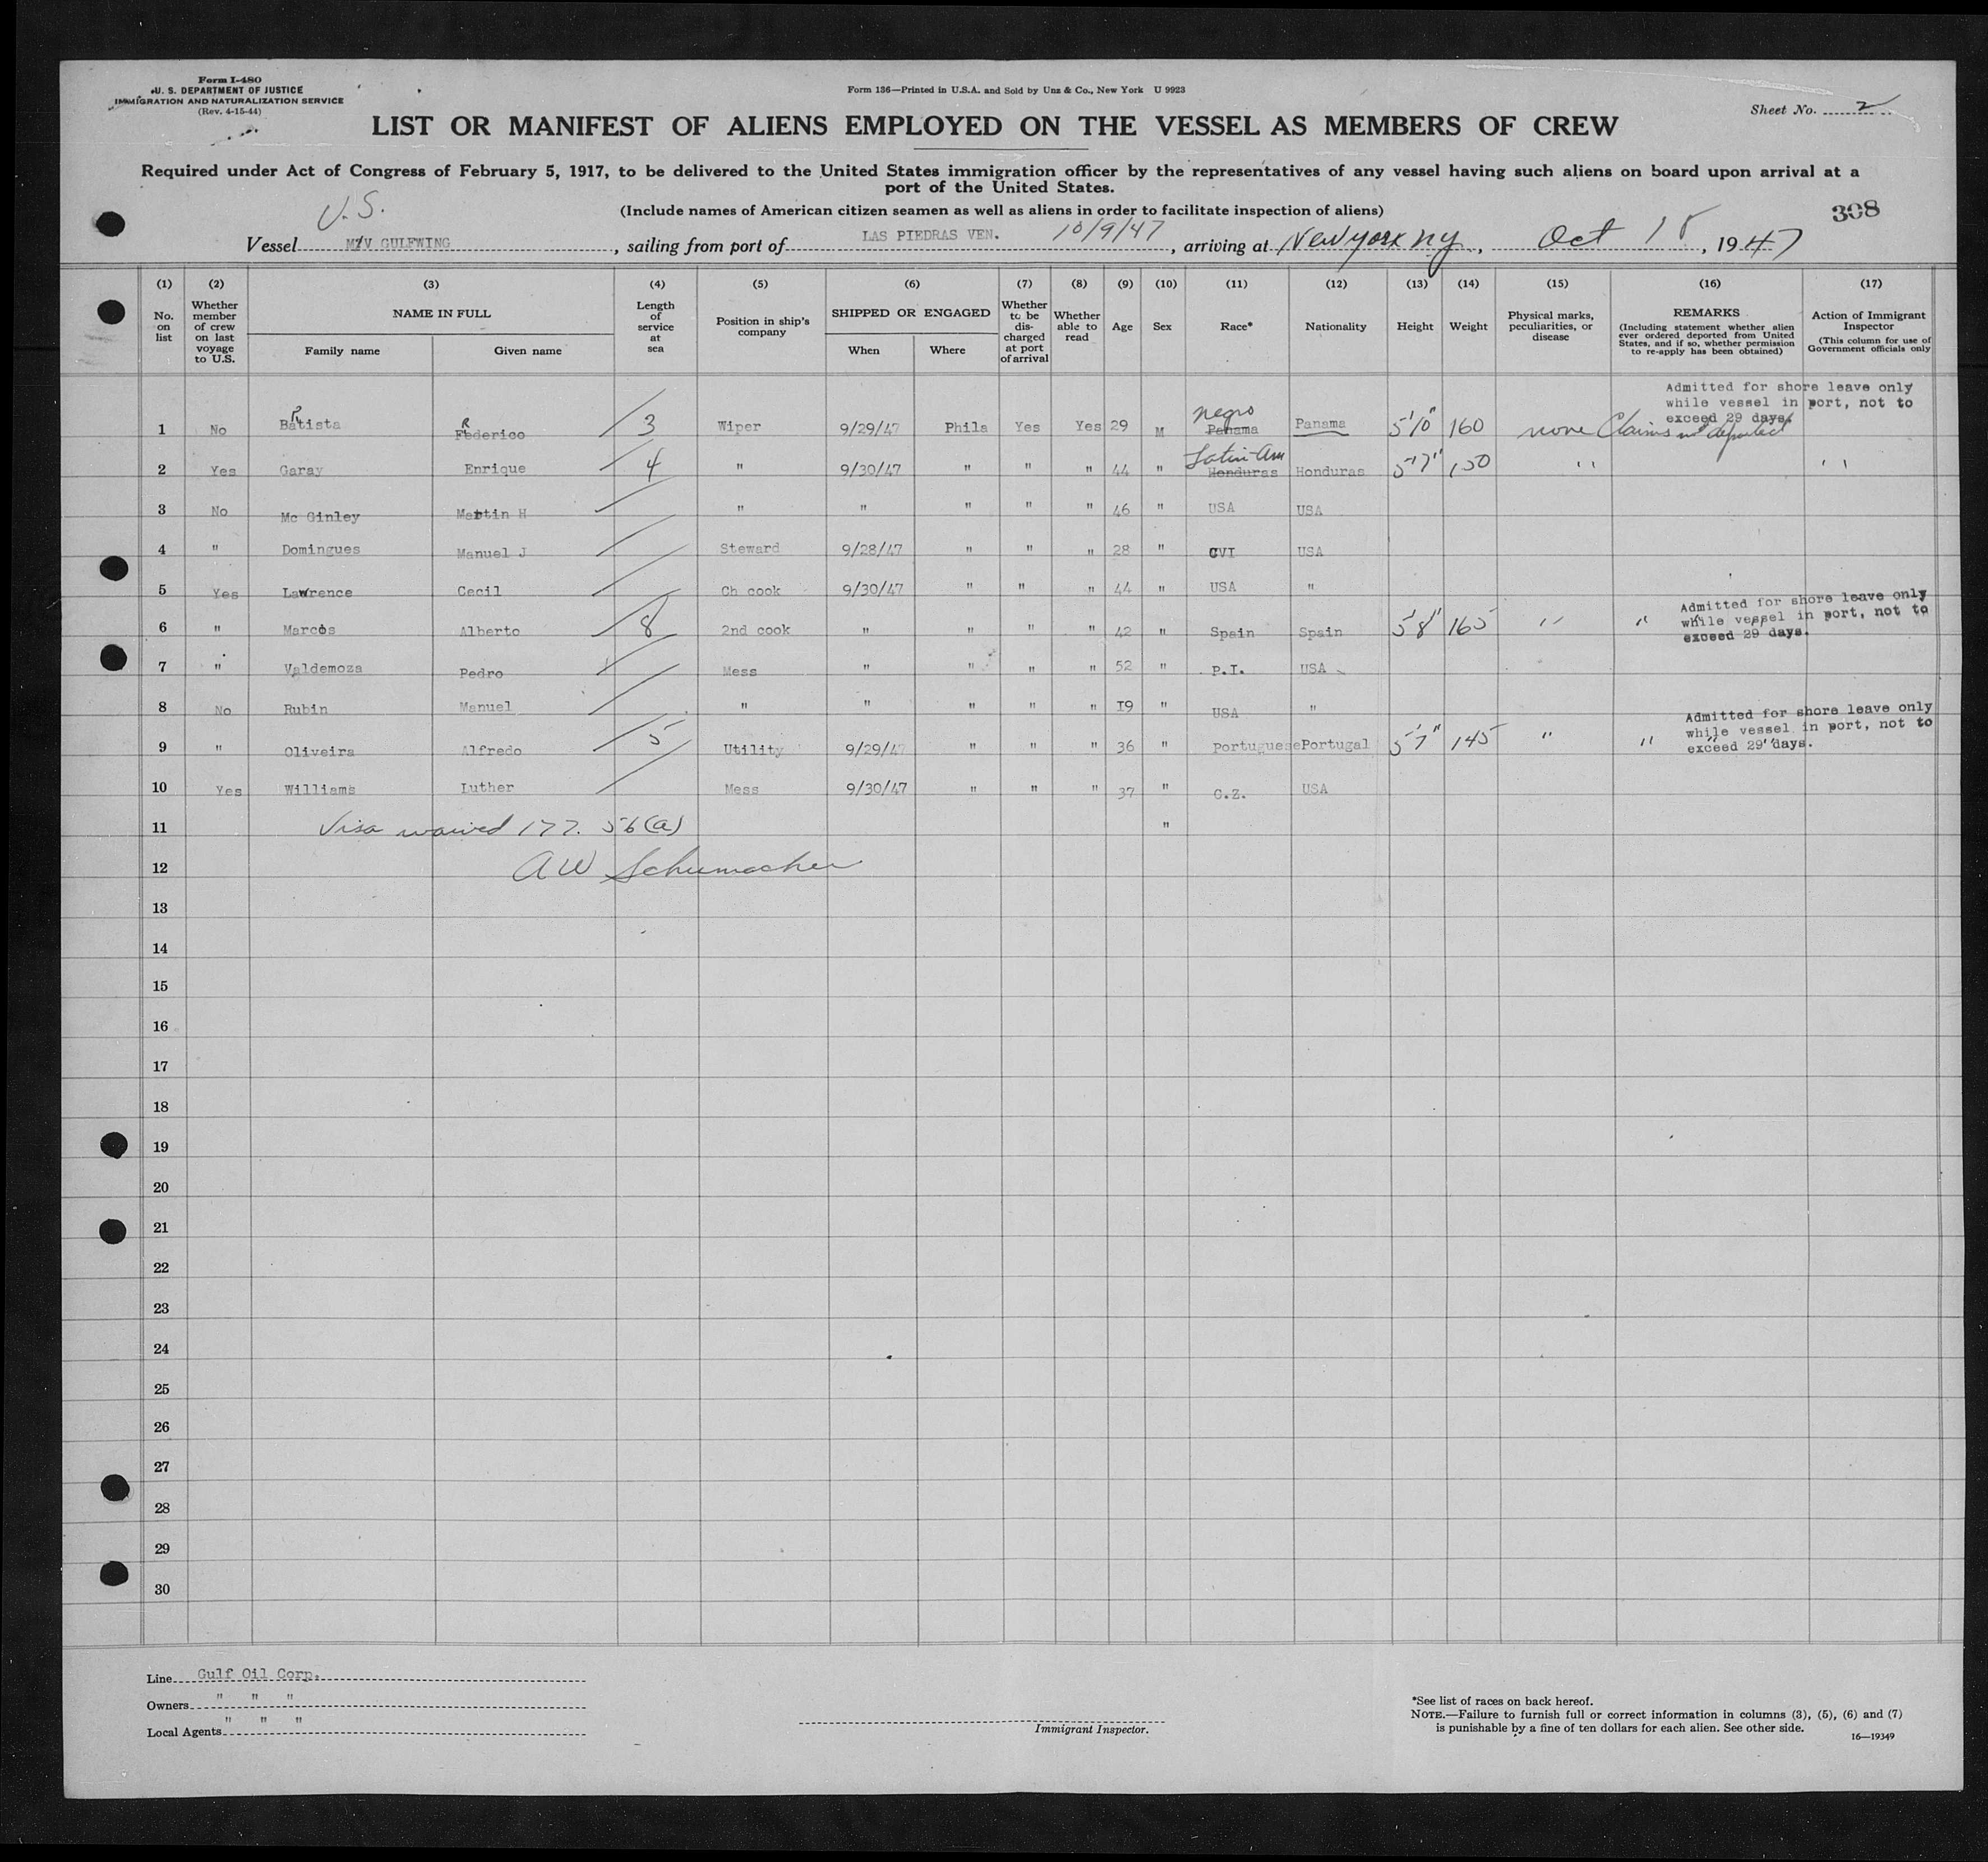 Form I-480
U. S. DEPARTMENT OF JUSTICE
IMMIGRATION AND NATURALIZATION SERVICE
(Rev. 4-15-44)
Form 136—Printed in U.S.A. and Sold by Unz & Co., New York U 9923
Sheet No. 2
LIST OR MANIFEST OF ALIENS EMPLOYED ON THE VESSEL AS MEMBERS OF CREW
Required under Act of Congress of February 5, 1917, to be delivered to the United States immigration officer by the representatives of any vessel having such aliens on board upon arrival at a
port of the United States.
(Include names of American citizen seamen as well as aliens in order to facilitate inspection of aliens)
308
U.S.
Vessel M/V GULFWING, sailing from port of LAS PIEDRAS VEN. 10/9/47, arriving at New York NY, Oct 15, 1947
(1) (2) (3) (4) (5) (6) (7) (8) (9) (10) (11) (12) (13) (14) (15) (16) (17)
No. on list
Whether member of crew on last voyage to U.S.
NAME IN FULL
Family name
Given name
Length of service at sea
Position in ship's company
SHIPPED OR ENGAGED
When
Where
Whether to be discharged at port of arrival
Whether able to read
Age
Sex
Race*
Nationality
Height
Weight
Physical marks, peculiarities, or disease
REMARKS
(Including statement whether alien ever ordered deported from United States, and if so, whether permission to re-apply has been obtained)
Action of Immigrant Inspector
(This column for use of Government officials only
Admitted for shore leave only
while vessel in port, not to
exceed 29 days.
1 No Batista Federico 3 Wiper 9/29/47 Phila Yes Yes 29 M Panama negro Panama 5'10" 160 none Claims not deported
2 Yes Garay Enrique 4 " 9/30/47 " " " 44 " Honduras Latin-Am Honduras 5'7" 150 " "
3 No Mc Ginley Martin H " " " " " 46 " USA USA
4 " Domingues Manuel J Steward 9/28/47 " " " 28 " CVI USA
5 Yes Lawrence Cecil Ch cook 9/30/47 " " " 44 " USA "
Admitted for shore leave only
while vessel in port, not to
exceed 29 days.
6 " Marcos Alberto 8 2nd cook " " " " 42 " Spain Spain 5'8" 165 " " "
7 " Valdemoza Pedro Mess " " " " 52 " P.I. USA
8 No Rubin Manuel " " " " " 19 " USA "
Admitted for shore leave only
while vessel in port, not to
exceed 29 days.
9 " Oliveira Alfredo 5 Utility 9/29/47 " " " 36 " Portuguese Portugal 5'7" 145 " " "
10 Yes Williams Luther Mess 9/30/47 " " " 37 " C.Z. USA
11 Visa waived 177. 56(a) "
12 AW Schumacher
13
14
15
16
17
18
19
20
21
22
23
24
25
26
27
28
29
30
Line Gulf Oil Corp.
Owners " " "
Local Agents " " "
Immigrant Inspector.
*See list of races on back hereof.
NOTE.—Failure to furnish full or correct information in columns (3), (5), (6) and (7)
is punishable by a fine of ten dollars for each alien. See other side.
16—19349